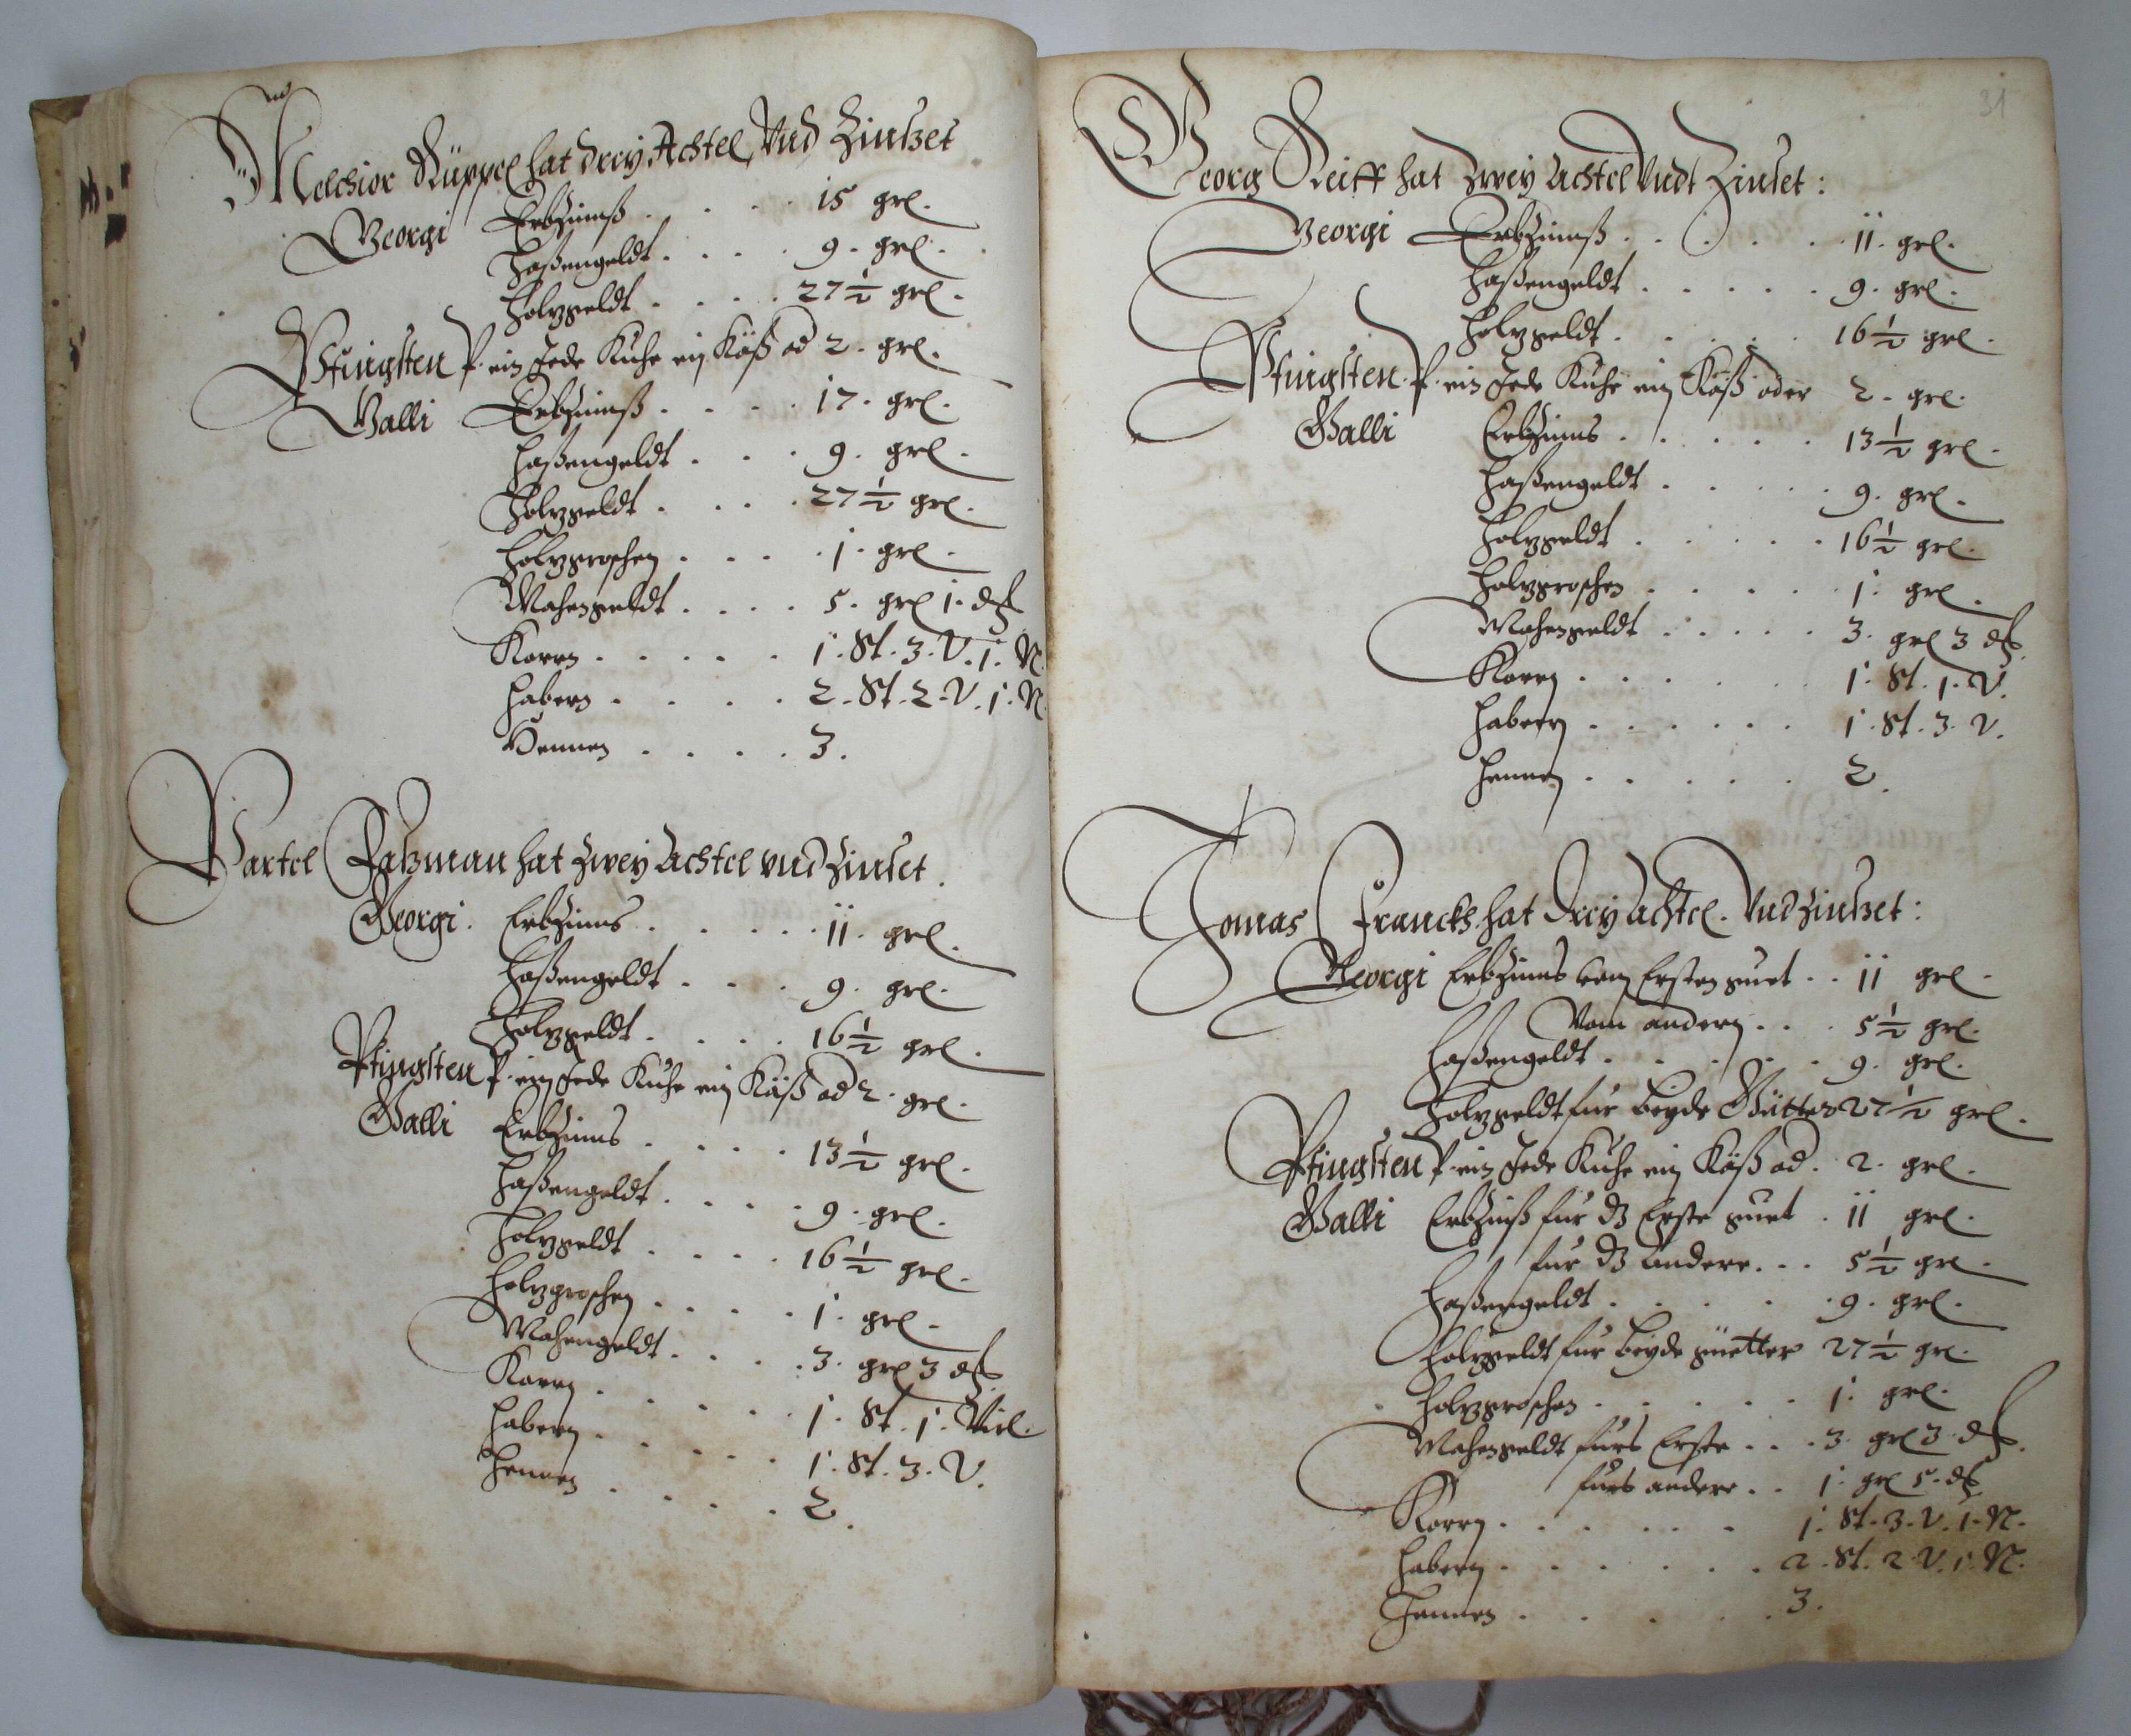 Melchior Rüppel hat drey Achtel, Vnd Zinßet
Georgi Erbzinnß . . . . 15 grl.
Haßengeldt . . . . 9. grl.
Holzgeldt . . . . 27½ grl.
Pfingsten P. ein Jede Kuhe ein Käß od 2. grl.
Galli Erbzinnß . . . . 17. grl.
Haßengeldt . . . 9. grl.
Holzgeldt . . . . 27½ grl.
Holzgroschen . . . . 1. grl.
Mahengeldt . . . . 5. grl 1. d
Korn . . . . . 1. St. 3. V. 1. N.
Habern . . . . 2. St. 2. V. 1. N
Hennen . . . . 3.
Bartel Raßman hat Zwey Achtel vnd Zinset.
Georgi. Erbzinns . . . . . 11. grl.
Haßengeldt . . . 9. grl.
Holzgeldt . . . . 16½ grl.
Pfingsten P. ein Jede Kuhe ein Käß od 2. grl.
Galli Erbzinns . . . . 13½ grl.
Haßengeldt . . . . 9. grl.
Holzgeldt . . . . 16½ grl.
Holzgroschen . . . . 1. grl.
Mahengeldt . . . . 3. grl 3 d
Korn . . . . . 1. St. 1. Virl.
Habern . . . . . 1. St. 3. V.
Hennen . . . . . 2.
31
Georg Reiff hat Zwey Achtel Vndt Zinset:
Georgi Erbzinnß . . . . . 11. grl.
Haßengeldt . . . . . 9. grl.
Holzgeldt . . . . . 16½ grl.
Pfingsten. P. ein Jede Kuhe ein Käß oder 2. grl.
Galli Erbzinns . . . . . 13½ grl.
Haßengeldt . . . . . 9. grl.
Holzgeldt . . . . . 16½ grl.
Holzgroschen . . . . . 1. grl.
Mahengeldt . . . . . 3. grl 3 d
Korn . . . . . . 1. St. 1. V.
Habern . . . . . . 1. St. 3. V.
Hennen . . . . . 2.
Tomas Francks hat Drey Achtel. Vnd Zinßet:
Georgi Erbzinns vom Ersten guet . . 11 grl.
Vom andern . . . 5½ grl.
Haßengeldt . . . . . 9. grl.
Holzgeldt für beyde Gütter 27½ grl.
Pfingsten P. ein Jede Kuhe ein Käß od. 2. grl.
Galli Erbzinß für dz Erste guet . 11 grl.
für dz andere . . . 5½ grl.
Haßengeldt . . . . . 9. grl.
Holzgeldt für beyde guetter 27½ grl.
Holzgroschen . . . . . 1. grl.
Mahengeldt fürs Erste . . . 3. grl 3. d
fürs andere . . 1. grl 5. d
Korn . . . . . . 1. St. 3. V. 1. N.
Habern . . . . . . 2. St. 2. V. 1. N.
Hennen . . . . . . 3.